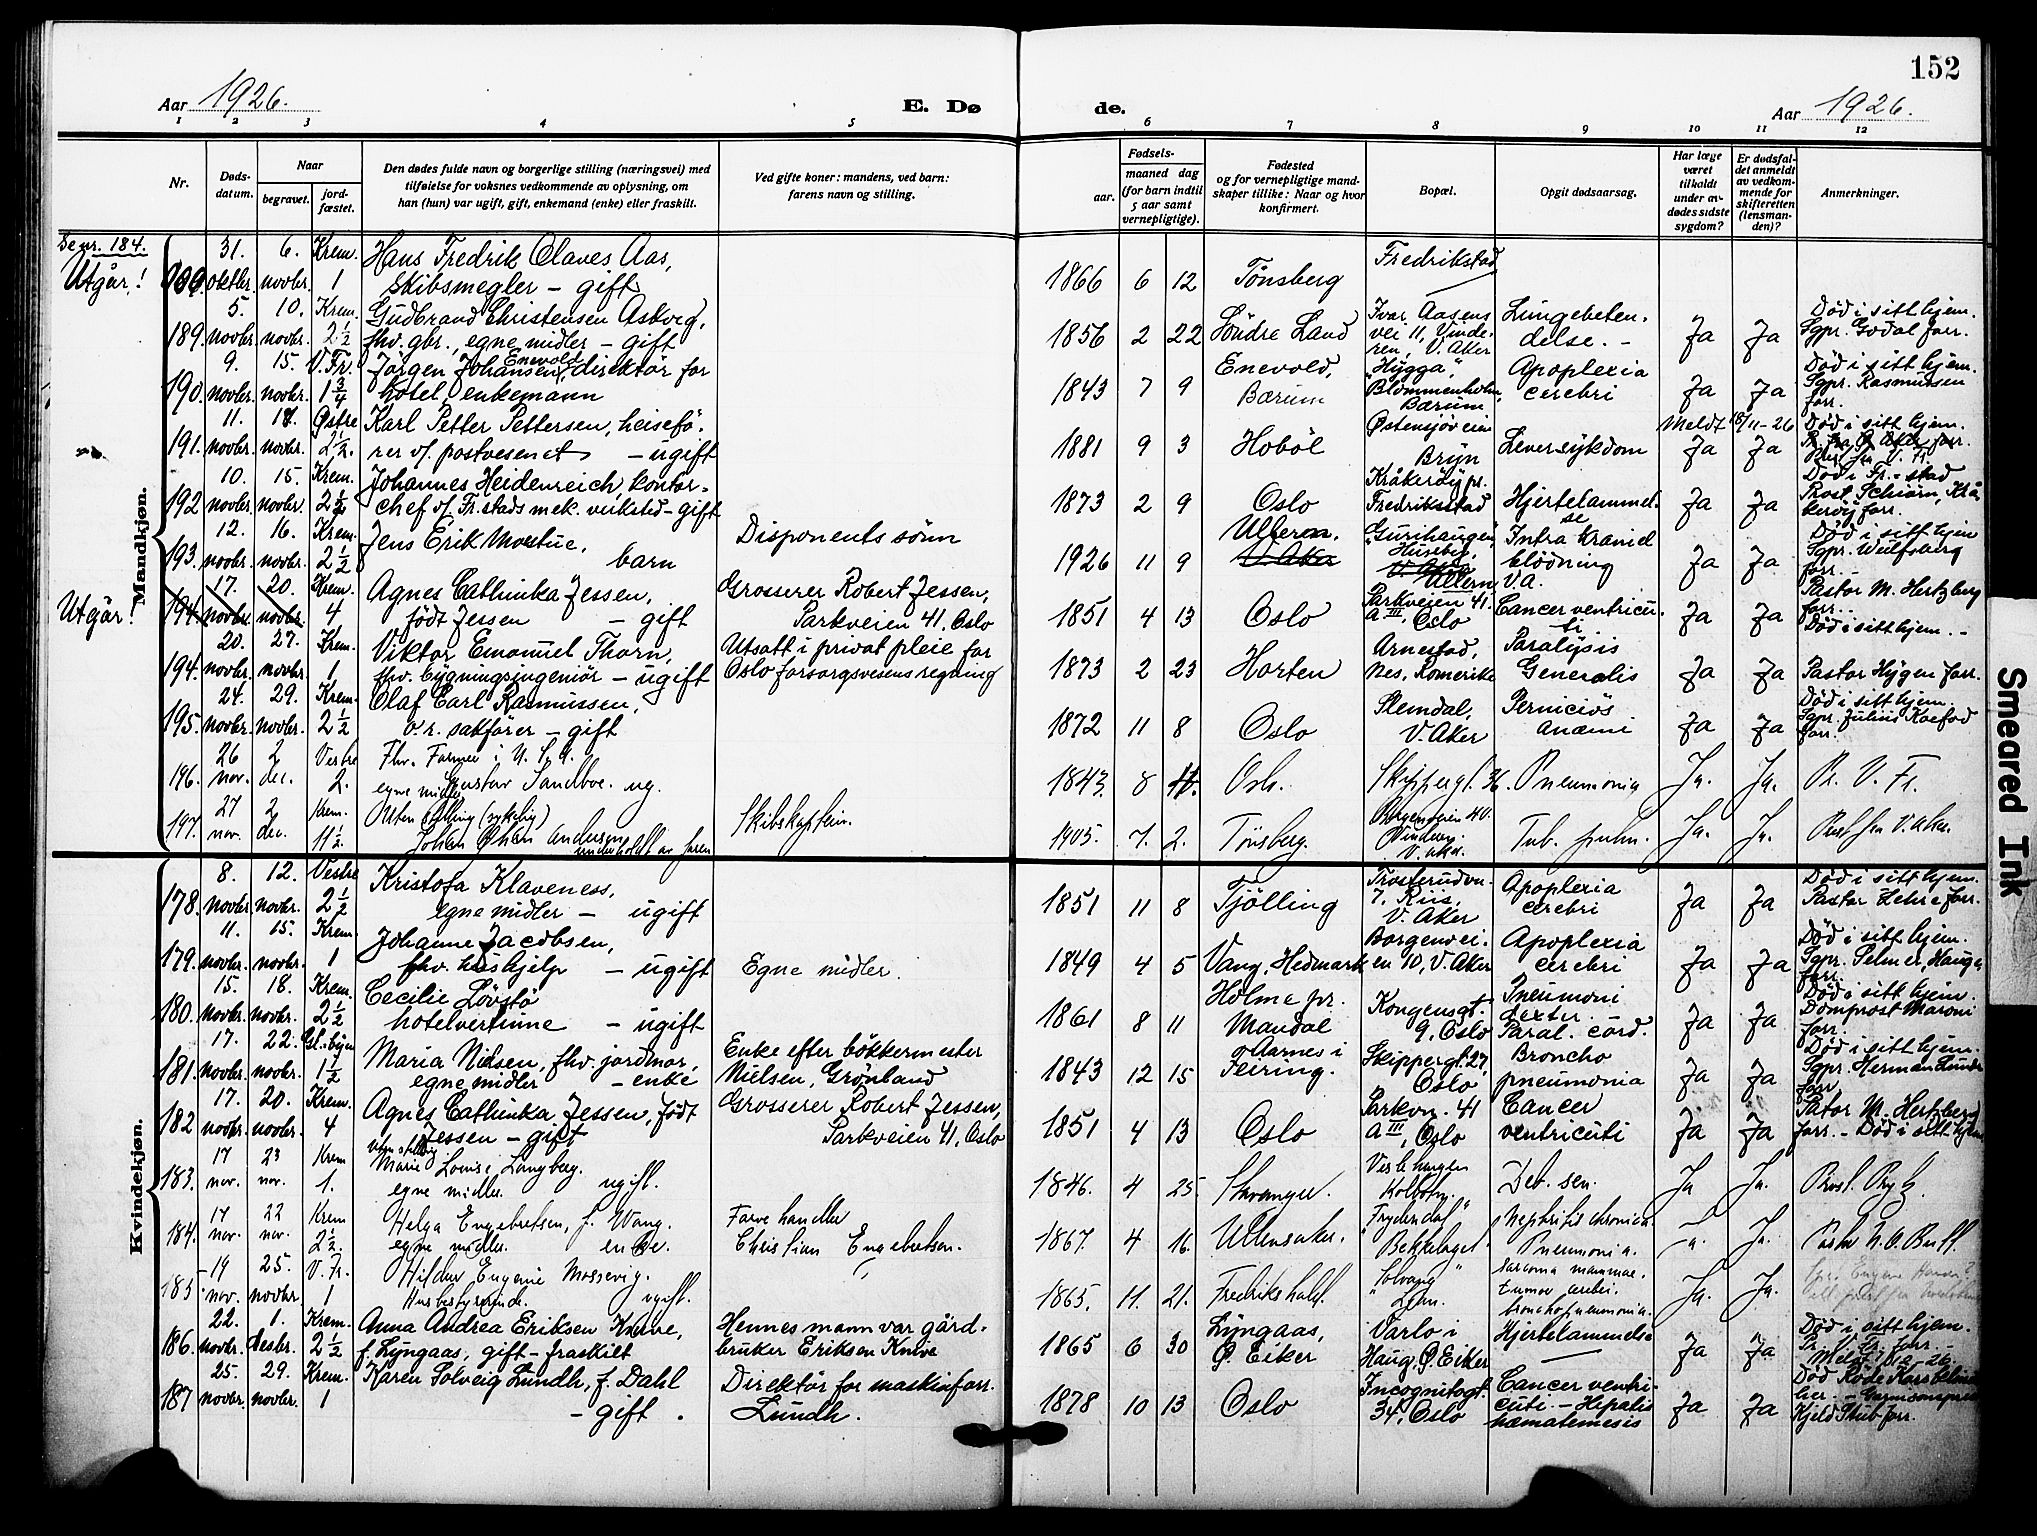 152
Aar 1926.
E. Dø
de.
Aar 1926.
1 2 3 4 5 6 7 8 9 10 11 12
Nr.
Døds-
datum.
Naar
begravet.
jord-
fæstet.
Den dødes fulde navn og borgerlige stilling (næringsvei) med
tilføielse for voksnes vedkommende av oplysning, om
han (hun) var ugift, gift, enkemand (enke) eller fraskilt.
Ved gifte koner: mandens, ved barn:
farens navn og stilling.
Fødsels-
aar.
maaned dag
(for barn indtil
5 aar samt
vernepligtige).
Fødested
og for vernepligtige mand-
skaper tillike: Naar og hvor
konfirmert.
Bopæl.
Opgit dødsaarsag.
Har læge
været
tilkaldt
under av-
dødes sidste
sygdom?
Er dødsfal-
det anmeldt
av vedkom-
mende for
skifteretten
(lensman-
den)?
Anmerkninger.
Mandkjøn.
Se nr. 184. 31. 6. Krem. Hans Fredrik Olaves Aas, Fredrikstad
Utgår! 189. oktbr. novbr. 1 Skibsmegler - gift 1866 6 12 Tönsberg
5. 10. Krem. Gudbrand Christensen Askveg, Ivar Aasens Lungebeten- Död i sitt hjem.
189. novbr. novbr. 2½ fhv. gbr., egne midler - gift 1856 2 22 Söndre Land vei 11, Vinde- delse. - Ja Ja Sgpr. Godal forr.
ren, V. Aker
9. 15. V. Fr. Jörgen Johansen Enevold, direktör for Enevold, "Hygga", Apoplexia Död i sitt hjem.
190. novbr. novbr. 1¾ hotel, enkemann 1843 7 9 Bærum Blommenholm, cerebri Ja Ja Sgpr. Rasmussen
Bærum forr.
11. 17. Østre Karl Petter Pettersen, heisefö- Østensjöveien Meldt 18/11-26 Död i sitt hjem.
191. novbr. novbr. 2½. rer v/ postvesenet - ugift 1881 9 3 Hoböl Bryn Leversykdom Ja Ja
10. 15. Krem. Johannes Heidenreich, kontor- Kråkeröy pr. Död i Fr.-stad
192 novbr. novbr. 2½ chef v/ Fr.stads mek. verksted - gift 1873 2 9 Oslo Fredrikstad Hjertelammel- Ja Ja Prost Schiörn, Krå-
se keröy forr.
12. 16. Krem. Jens Erik Mostue, Disponents sönn Ullern, "Gurihaugen", Intra kraniel Död i sitt hjem
193. novbr. novbr. 2½ barn 1926 11 9 V. Aker Huseby, blödning Ja Ja Sgpr. Wulfsberg
V. Aker Ullern, V. A. forr.
17. 20. Krem. Agnes Cathinka Jessen, Grosserer Robert Jessen, Parkveien 41. Cancer ventricu- Pastor M. Hertzberg
Utgår! 194. novbr. novbr. 4 født Jessen - gift Parkveien 41, Oslo 1851 4 13 Oslo A III, Oslo li Ja Ja forr.
Död i sitt hjem. -
20. 27. Krem. Viktor Emanuel Thorn, Utsatt i privat pleie for Arnestad, Paralysis
194. novbr. novbr. 1 fhv. bygningsingeniör - ugift Oslo forsorgsvesens regning 1873 2 23 Horten Nes, Romerike Generalis Ja Ja Pastor Hygen forr.
24. 29. Krem. Olaf Carl Rasmussen, Slemdal, Perniciös Död i sitt hjem.
195. novbr. novbr. 2½ o.r. sakförer - gift 1872 11 8 Oslo V. Aker anæmi Ja Ja Sgpr. Julius Koefod
forr.
26 2 Vestre Fhv. Farmer i U. S. A.
196. nov. dec. 2. egne midler Gustav Sandboe. ug. 1843. 8 11. Oslo. Skippergt. 36. Pneumonia Ja. Ja. Pr. V. Fr.
27 2 Krem. Uten stilling (sykelig) Skibskaptein.
197. nov. dec. 11½. Johan Othar Anderson 1905. 7. 2. Tönsberg. Vinderen Tub. pulm. Ja. Ja. Prest fra V. Aker.
underholdt av faren V. Aker.
Kvindekjøn.
8. 12. Vestre Kristofa Klaveness, Trosterudvn. Apoplexia Död i sitt hjem.
178. novbr. novbr. 2½ egne midler - ugift 1851 11 8 Tjölling 7, Riis, cerebri Ja Ja Pastor Zehre forr.
V. Aker
11. 15. Krem. Johanne Jacobsen, Borgenvei- Apoplexia Död i sitt hjem.
179. novbr. novbr. 1 fhv. hushjelp - ugift Egne midler. 1849 4 5 Vang, Hedmark en 10, V. Aker cerebri Ja Ja Sgpr. Selmer, Hauge
forr.
15. 18. Krem. Cecilie Lövstö Holme pr. Kongensgt. Pneumoni Död i sitt hjem.
180. novbr. novbr. 2½ hotelvertinne - ugift 1861 8 11 Mandal 9, Oslo dexter. Paral. cord. Ja Ja Domprost Maroni
forr.
17. 22. Gl. byen Maria Nielsen, fhv. jordmor, Enke efter bökkermester Aarnes i Skippergt. 27, Broncho Död i sitt hjem.
181. novbr. novbr. 1½ egne midler - enke Nielsen, Grönland 1843 12 15 Feiring. Oslo pneumonia Ja Ja Sgpr. Herman Lunde
forr.
17. 20. Krem. Agnes Cathinka Jessen, födt Grosserer Robert Jessen, Parkvn. 41 Cancer Pator M. Hertzberg
182 novbr. novbr. 4 Jessen - gift Parkveien 41, Oslo 1851 4 13 Oslo A III, Oslo ventriculi Ja Ja forr. - Död i sitt hjem
17 23 Krem uten stilling
183. nov. nov. 1. Marie Louise Langberg. 1846. 4 25. Stavanger. Kolbotn. Det. sen. Ja Ja.
egne midler. ugift.
17 22 Krem Helga Engebretsen, f. Wang. Farvehandler "Frydendal" Nephritis chronica.
184. nov. nov. 2½. egne midler. enke. Christian Engebretsen. 1867. 4 16. Ullensaker. Bekkelaget. Pneumonia. Ja.
19 25. V. Fr. Hilda Eugenie Mossevig. "Solvang" sarcoma mammae.
185. nov. novbr. 1 Husbestyrerinde. ugift. 1865. 11. 21. Fredrikshald. Ljan. tumor cerebri. Ja. Ja.
bronchopneumonia.
22. 1. Krem. Anna Andrea Eriksen Knive, Hennes mann var gård- Lyngaas, Varlo i Hjertelammelse Död i sitt hjem.
186. novbr. desbr. 2½ f. Lyngaas, gift - fraskilt bruker Eriksen Knive 1865 6 30 Ø. Eiker Haug, Ø. Eiker Ja Ja Pr. V. Fr. forr. -
25. 29. Krem. Karen Solveig Lundh, f. Dahl Direktör for maskinforr. Incognitogt. Cancer ventri-
187 novbr. novbr. 1 - gift. Lundh. 1878 10 13 Oslo 34, Oslo culi - Hepatis Ja Ja
hæmatemesis Kjeld Stub forr.
Smeared Ink